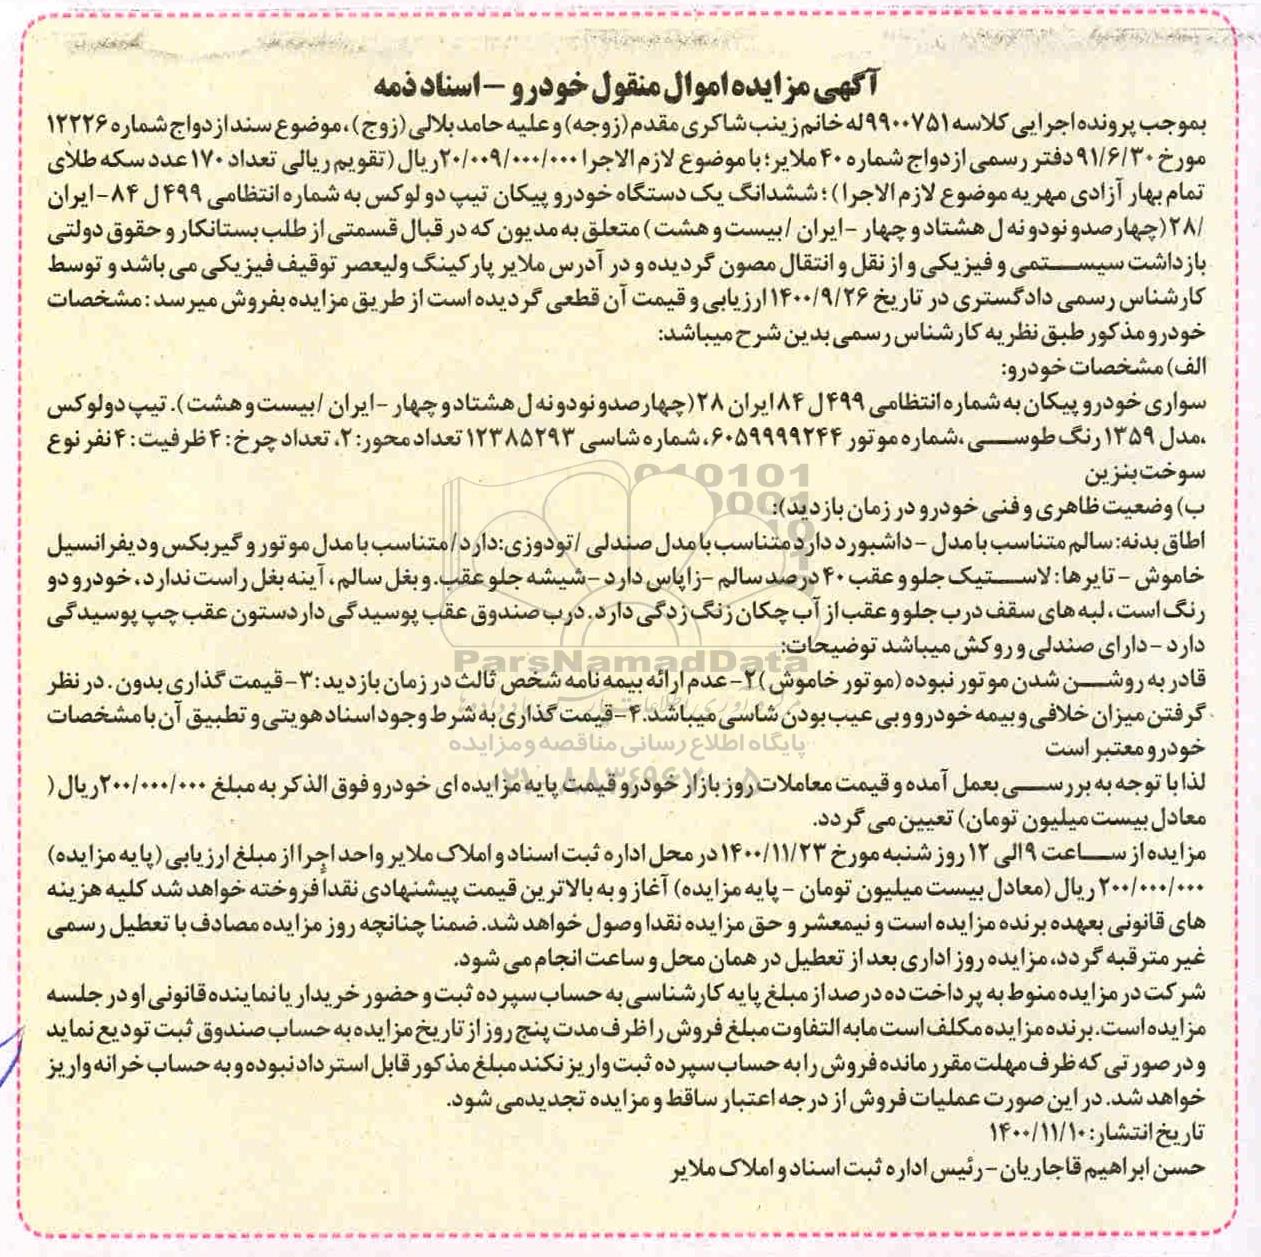 آگهی مزایده اموال منقول خودرو – اسناد ذمه
بموجب پرونده اجرایی کلاسه ۹۹۰۰۷۵۱ له خانم زینب شاکری مقدم (زوجه) و علیه حامد بلالی (زوج)، موضوع سند ازدواج شماره ۱۲۲۲۶
مورخ ۹۱/۶/۳۰ دفتر رسمی ازدواج شماره ۴۰ ملایر؛ با موضوع لازم الاجرا ۲۰/۰۰۹/۰۰۰/۰۰۰ ریال (تقویم ریالی تعداد ۱۷۰ عدد سکه طلای
تمام بهار آزادی مهریه موضوع لازم الاجرا)؛ ششدانگ یک دستگاه خودرو پیکان تیپ دو لوکس به شماره انتظامی ۴۹۹ ل ۸۴- ایران
/۲۸ (چهارصد و نود و نه ل هشتاد و چهار – ایران / بیست و هشت) متعلق به مدیون که در قبال قسمتی از طلب بستانکار و حقوق دولتی
بازداشت سیستمی و فیزیکی و از نقل و انتقال مصون گردیده و در آدرس ملایر پارکینگ ولیعصر توقیف فیزیکی می باشد و توسط
کارشناس رسمی دادگستری در تاریخ ۱۴۰۰/۹/۲۶ ارزیابی و قیمت آن قطعی گردیده است از طریق مزایده بفروش میرسد: مشخصات
خودرو مذکور طبق نظریه کارشناس رسمی بدین شرح میباشد:
الف) مشخصات خودرو:
سواری خودرو پیکان به شماره انتظامی ۴۹۹ ل ۸۴ ایران ۲۸ (چهارصد و نود و نه ل هشتاد و چهار – ایران / بیست و هشت). تیپ دولوکس
،مدل ۱۳۵۹ رنگ طوسی ،شماره موتور ۶۰۵۹۹۹۹۲۴۴، شماره شاسی ۱۲۳۸۵۲۹۳ تعداد محور: ۲، تعداد چرخ: ۴ ظرفیت: ۴ نفر نوع
سوخت بنزین
ب) وضعیت ظاهری و فنی خودرو در زمان بازدید):
اطاق بدنه: سالم متناسب با مدل – داشبورد دارد متناسب با مدل صندلی / تودوزی: دارد/ متناسب با مدل موتور و گیربکس و دیفرانسیل
خاموش – تایرها: لاستیک جلو و عقب ۴۰ درصد سالم – زاپاس دارد – شیشه جلو عقب. و بغل سالم، آینه بغل راست ندارد، خودرو دو
رنگ است، لبه های سقف درب جلو و عقب از آب چکان زنگ زدگی دارد. درب صندوق عقب پوسیدگی دارد ستون عقب چپ پوسیدگی
دارد – دارای صندلی و روکش میباشد توضیحات:
قادر به روشن شدن موتور نبوده (موتور خاموش) ۲- عدم ارائه بیمه نامه شخص ثالث در زمان بازدید: ۳- قیمت گذاری بدون. در نظر
گرفتن میزان خلافی و بیمه خودرو و بی عیب بودن شاسی میباشد. ۴- قیمت گذاری به شرط وجود اسناد هویتی و تطبیق آن با مشخصات
خودرو معتبر است
لذا با توجه به بررسی بعمل آمده و قیمت معاملات روز بازار خودرو قیمت پایه مزایده ای خودرو فوق الذکر به مبلغ ۲۰۰/۰۰۰/۰۰۰ ریال (
معادل بیست میلیون تومان) تعیین می گردد.
مزایده از ساعت ۹ الی ۱۲ روز شنبه مورخ ۱۴۰۰/۱۱/۲۳ در محل اداره ثبت اسناد و املاک ملایر واحد اجرا از مبلغ ارزیابی (پایه مزایده)
۲۰۰/۰۰۰/۰۰۰ ریال (معادل بیست میلیون تومان – پایه مزایده) آغاز و به بالاترین قیمت پیشنهادی نقدا فروخته خواهد شد کلیه هزینه
های قانونی بعهده برنده مزایده است و نیمعشر و حق مزایده نقدا وصول خواهد شد. ضمنا چنانچه روز مزایده مصادف با تعطیل رسمی
غیر مترقبه گردد، مزایده روز اداری بعد از تعطیل در همان محل و ساعت انجام می شود.
شرکت در مزایده منوط به پرداخت ده درصد از مبلغ پایه کارشناسی به حساب سپرده ثبت و حضور خریدار یا نماینده قانونی او در جلسه
مزایده است. برنده مزایده مکلف است مابه التفاوت مبلغ فروش را ظرف مدت پنج روز از تاریخ مزایده به حساب صندوق ثبت تودیع نماید
و در صورتی که ظرف مهلت مقرر مانده فروش را به حساب سپرده ثبت واریز نکند مبلغ مذکور قابل استرداد نبوده و به حساب خرانه واریز
خواهد شد. در این صورت عملیات فروش از درجه اعتبار ساقط و مزایده تجدید می شود.
تاریخ انتشار: ۱۴۰۰/۱۱/۱۰
حسن ابراهیم قاجاریان – رئیس اداره ثبت اسناد و املاک ملایر
ParsNamadData
پایگاه اطلاع رسانی مناقصه و مزایده